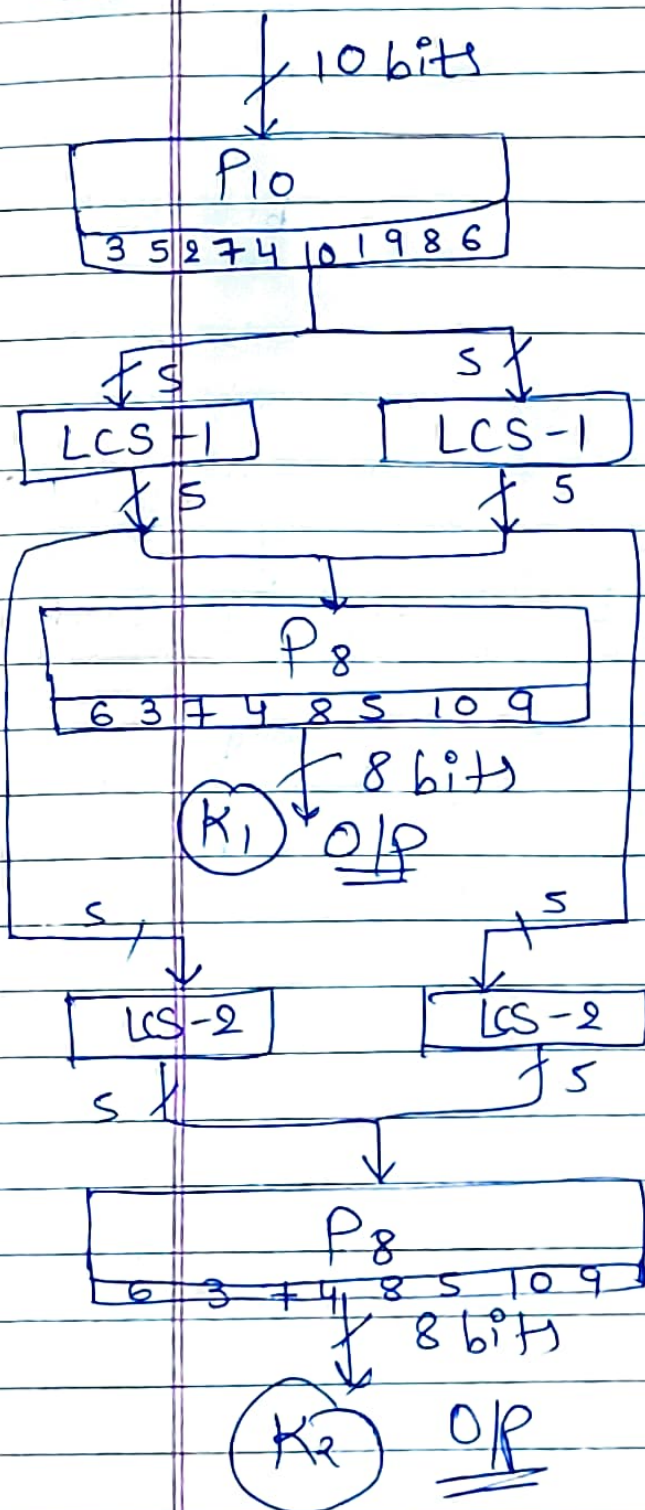 10 bits
P10
3 5 2 7 4 10 1 9 8 6
5 5
LCS-1 LCS-1
5 5
P8
6 3 7 4 8 5 10 9
8 bits
K1 O/P
5 5
LCS-2 LCS-2
5 5
P8
6 3 7 4 8 5 10 9
8 bits
K2 O/P